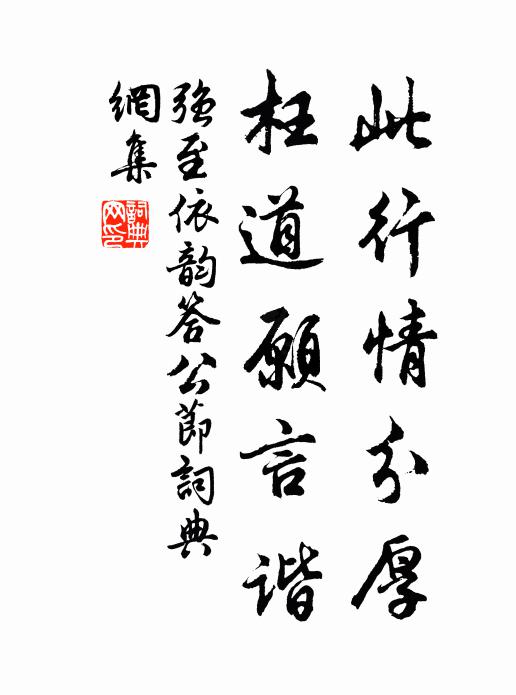 此行情分厚
枉道願言谐
強至依韵答公節詞典
網集
詞典網印